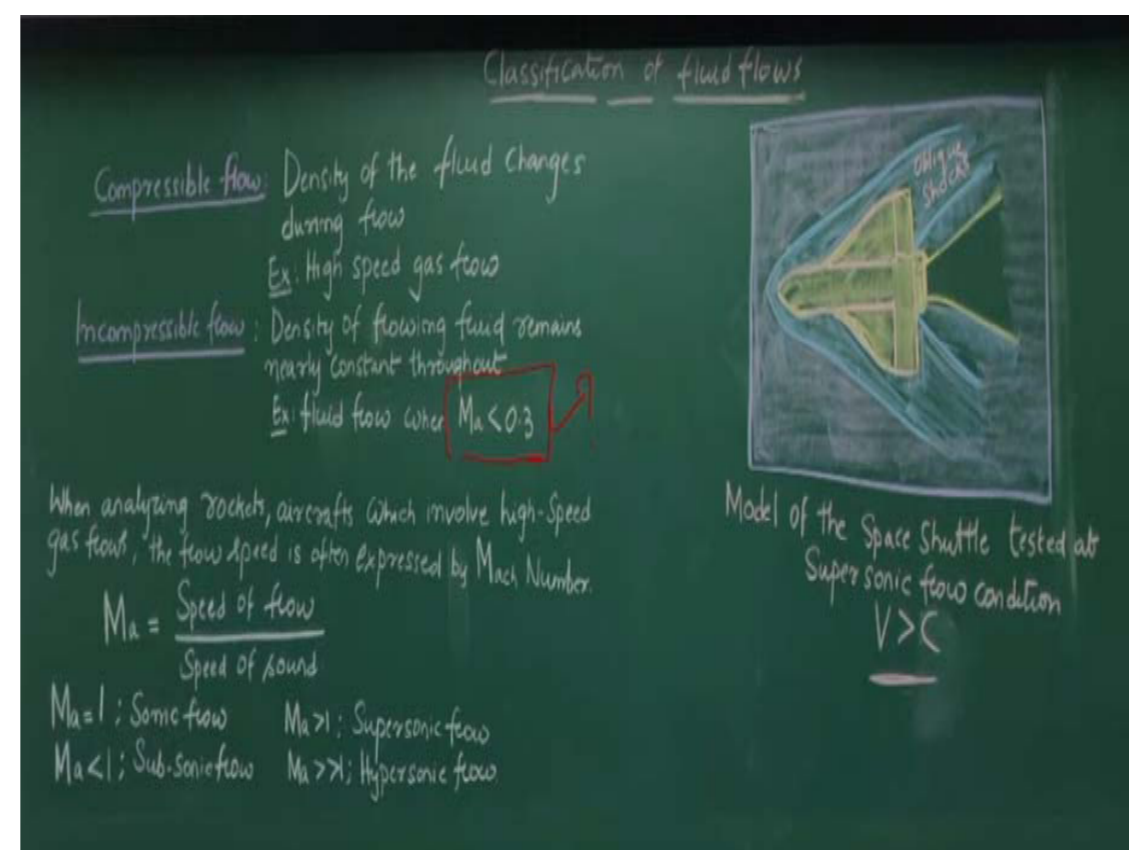 Classification of fluid flows
Compressible flow: Density of the fluid changes
during flow
Ex. High speed gas flow
Incompressible flow: Density of flowing fluid remains
nearly constant throughout
Ex: fluid flow when Ma<0.3
When analyzing rockets, aircrafts which involve high-speed
gas flows, the flow speed is often expressed by Mach Number.
Ma = Speed of flow
Speed of sound
Ma=1; Sonic flow Ma>1; Supersonic flow
Ma<1; Sub-sonic flow Ma>>1; Hypersonic flow
oblique
shocks
Model of the Space Shuttle tested at
Supersonic flow condition
V>C